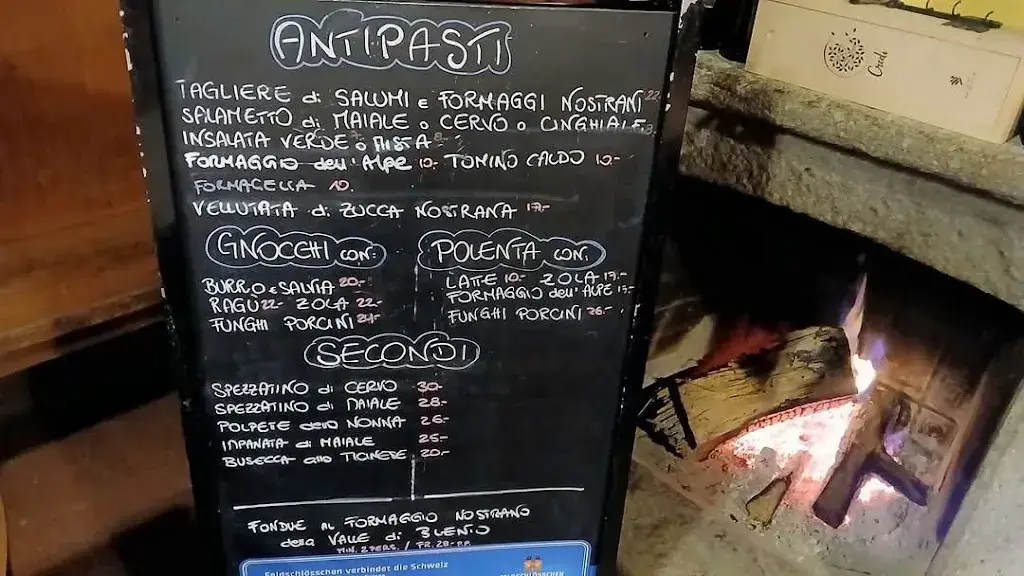 ANTIPASTI
TAGLIERE di SALUMI e FORMAGGI NOSTRANI 22
SALAMETTO di MAIALE o CERVO o CINGHIALE
INSALATA VERDE o MISTA
FORMAGGIO dell'ALPE 10.- TOMINO CALDO 10.-
FORMAGELLA 10.
VELLUTATA di ZUCCA NOSTRANA 17.-
GNOCCHI CON:
BURRO e SALVIA 20.-
RAGU 22.- ZOLA 22.-
FUNGHI PORCINI 24.-
POLENTA CON:
LATTE 10.- ZOLA 17.-
FORMAGGIO dell'ALPE 17.-
FUNGHI PORCINI 26.-
SECONDI
SPEZZATINO di CERVO 30.-
SPEZZATINO di MAIALE 28.-
POLPETE della NONNA 26.-
IMPANATA di MAIALE 25.-
BUSECCA alla TICINESE 20.-
FONDUE AL FORMAGGIO NOSTRANO
della VALLE di BLENIO
MIN. 2 PERS. / FR. 28.-
Feldschlösschen verbindet die Schweiz
FELDSCHLÖSSCHEN